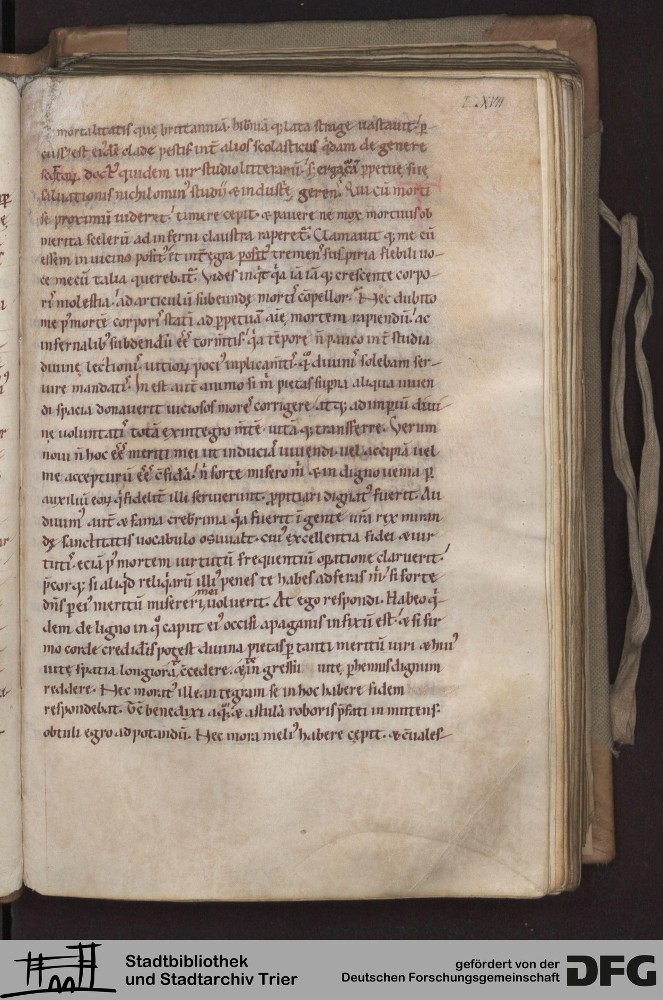 LXVII
mortalitatis que brittanniā hiƀniā q; lata strage uastauit ꝑ
cussꝰ est eiꝰdē clade pestis int̄ alios scolasticus q̇dam de genere
scottoꝝ doctꝰ quidem uir studio litterarū
saluationis nichilominꝰ studii & industrię gerens Qui cū morti
se proximū uideret timere cepit & pauere ne mox mortuus ob
merita scelerū ad inferni claustra raperet̄ Clamauit q; me cū
essem in uicino positꝰ et int̄egra positꝰ tremens suspiria flebili uo-
ce mecū talia querebat̄ Vides inq̇t q̇a iā iā q; crescente corpo-
ris molestia ad articulū subeundę mortis cōpellor Nec dubito
me p̄ mortē corporis statī ad ꝑpetuā aīę mortem rapiendū ac
infernalibꝰ subdendū ēē torm̄tis q̇a tēpore n̄ pauco int̄ studia
diuinę lectionis uitioꝝ pociꝰ inplicam̄tis q̄ diuinis solebam ser-
uire mandatis In est aut̄ animo si m̄ pietas supna aliqua uiuen
di spacia donauerit uiciosos mores corrigere atq; ad imꝑiū diui
nę uoluntatis totā ex integro m̄tē uitā q; transferre Verum
noui n̄ hoc ēē meriti mei ut inducias uiuendi uel accipiā uel
me accepturū ēē c̄fidā n̄ forte misero m̄ & in digno uenia ꝑ
auxiliū eoꝝ q̇ fidelit̄ illi seruierunt ꝓpitiari dignatꝰ fuerit Au
diuimꝰ aut̄ & fama creberrima q̇a fuerit ī gente ur̄a rex miran
dę sanctitatis uocabulo osuualt cuiꝰ excellentia fidei & uir
tutis eciā p̄ mortem uirtutū frequentiū oꝑatione claruerit
p̄cor q; si aliq̇d reliq̇arū illiꝰ penes te habes adferas m̄ si forte
dn̄s ꝑ eiꝰ meritū misereri mei uoluerit At ego respondi Habeo q̇-
dem de ligno in q̊ caput eiꝰ occisi a paganis infixū est & si fir
mo corde credidis potest diuina pietas ꝑ tanti meritū uiri & huiꝰ
uitę spatia longiora c̄cedere & in gressū uite ꝑhennis dignum
reddere Nec moratꝰ ille integram se in hoc habere fidem
respondebat Tc̄ benedixi aq̄ & astulā roboris p̄fati inmittens
obtuli egro ad potandū Nec mora meliꝰ habere cępit & c̄uales-
Stadtbibliothek
und Stadtarchiv Trier
gefördert von der
Deutschen Forschungsgemeinschaft
DFG